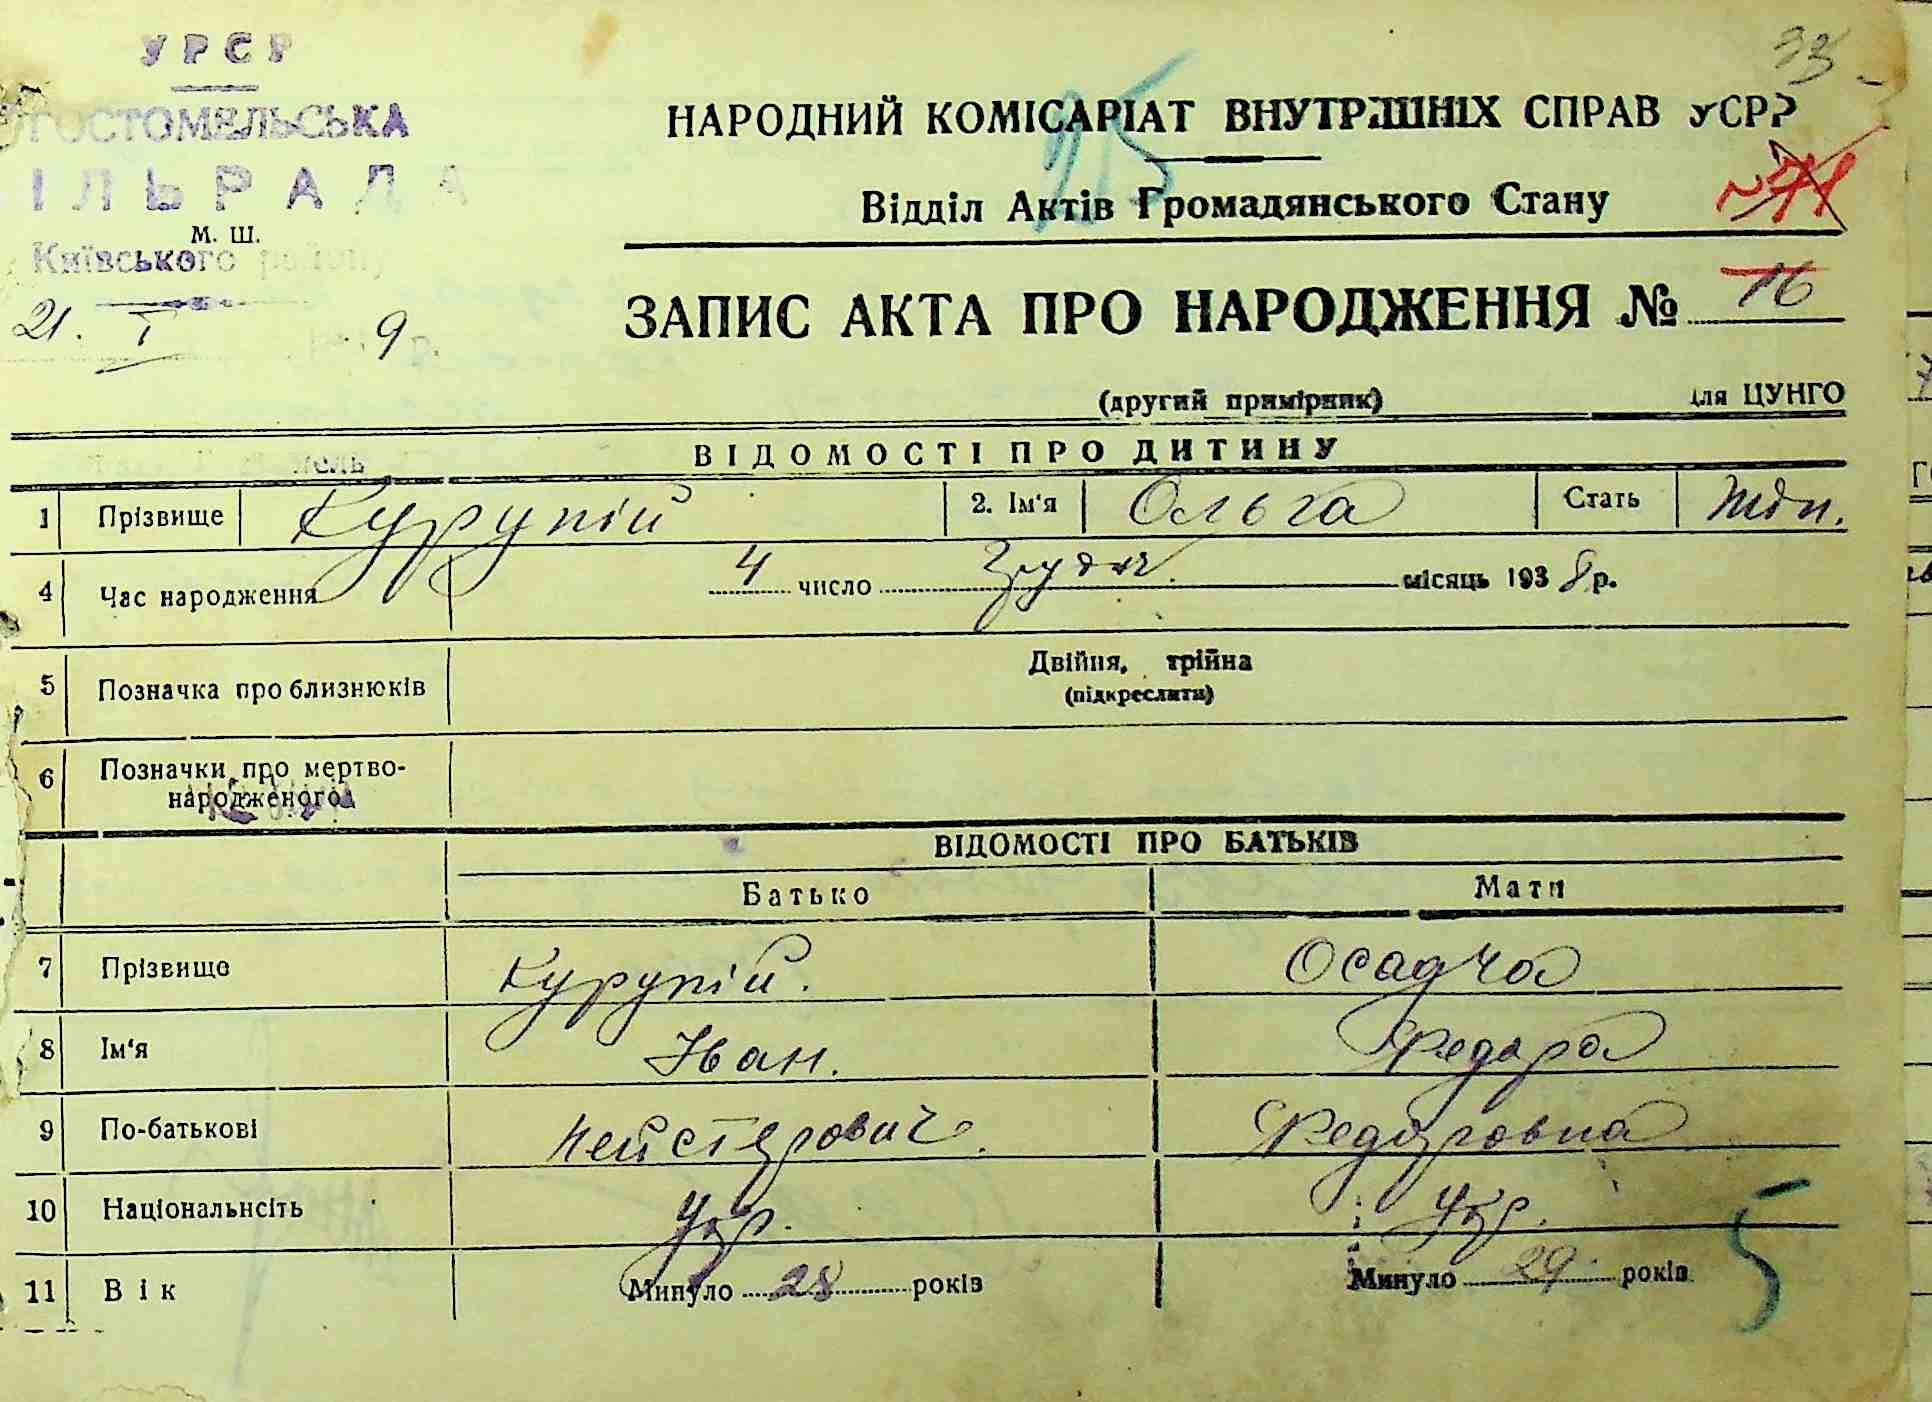 УРСР
33
ГОСТОМЕЛЬСЬКА
ІЛЬРАДА
М. Ш.
Київського району
21. I 9 р.
НАРОДНИЙ КОМІСАРІАТ ВНУТРІШНІХ СПРАВ УСРР
Відділ Актів Громадянського Стану
ЗАПИС АКТА ПРО НАРОДЖЕННЯ № 16
(другий примірник) для ЦУНГО
ВІДОМОСТІ ПРО ДИТИНУ
1 Прізвище Курупій 2. Ім'я Ольга Стать жін.
4 Час народження 4 число Грудн. місяць 1938 р.
5 Позначка про близнюків Двійня, трійна
(підкреслити)
6 Позначки про мертво-
народженого
ВІДОМОСТІ ПРО БАТЬКІВ
Батько Мати
7 Прізвище Курупій. Осадча
8 Ім'я Іван. Федора
9 По-батькові Нейстерович. Федоровна
10 Національнсіть Укр. Укр.
11 Вік Минуло 28 років Минуло 29 років
5